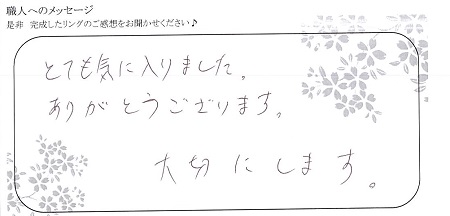 職人へのメッセージ
是非 完成したリングのご感想をお聞かせください♪
とても気に入りました。
ありがとうございます。
大切にします。